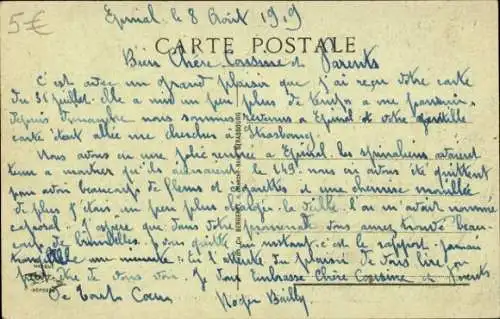 5€
Epinal le 8 Août 1919
CARTE POSTALE
Bien Chère Cousine et Parents
C'est avec un grand plaisir que j'ai reçu votre carte
du 31 juillet. elle a mis un peu plus de temps a me parvenir.
depuis dimanche nous sommes revenus a Epinal et votre gentille
carte était allée me chercher a Strasbourg.
Nous avons eu une jolie rentrée a Epinal. les spinaliens
a montrer qu'ils aimaient le 149. nous en avons été quittent
pour avoir beaucoup de fleurs et cigarettes et une chemise mouillée
de plus j'étais un peu plus la veille l'on m'avait nommé
caporal. J'espère que dans votre promenade vous avez trouvé beau-
coup de Je vous quitte un instant. c'est le rapport. jamais
tranquille une minute. En l'attente du plaisir de vous lire ou
de vous voir. Je vous Embrasse Chère Cousine et Parents
de tout Cœur Roger Bailly
STRASBOURG